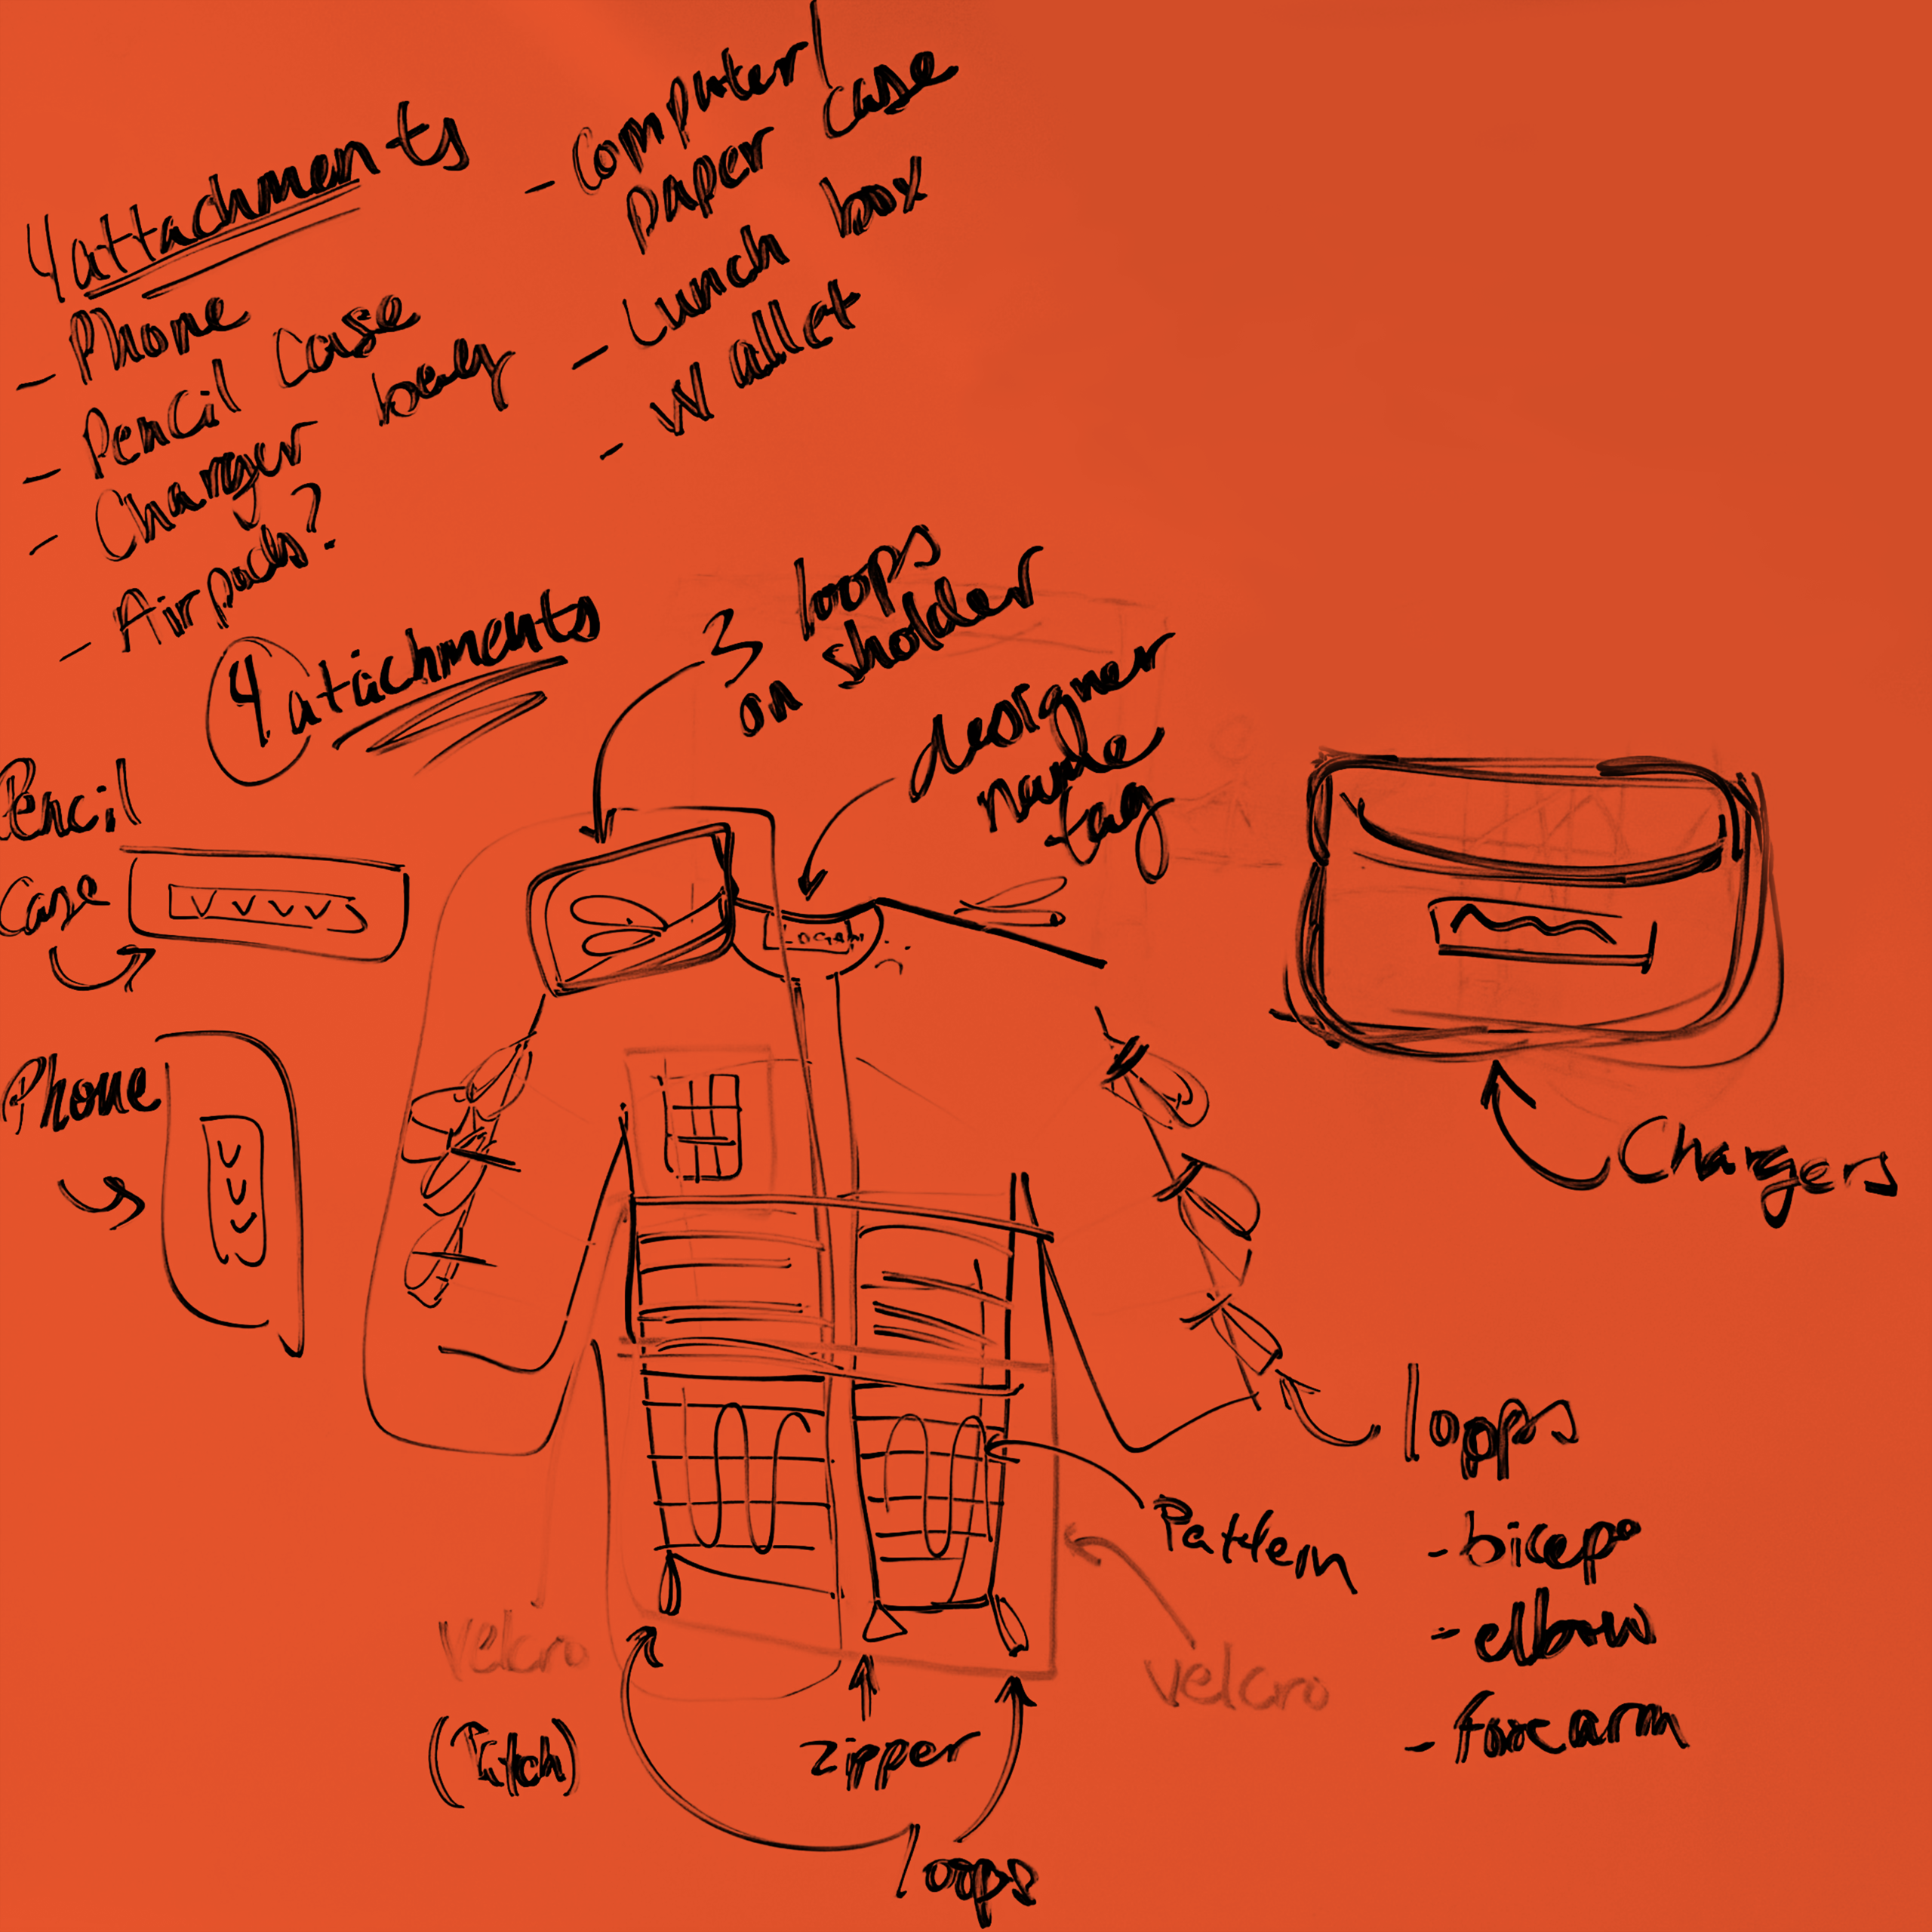 4 attachments
- Phone
- Pencil Case
- Charger
- Airpods?
- Computer/
paper case
- Lunch box
- Wallet
4 atachments
3 loops
on sholder
designer
name
tag
Pencil
Case
VVVV
LOGAN
Phone
Chargers
loops
- bicep
- elbow
- forearm
Pattern
velcro
velcro
zipper
loops